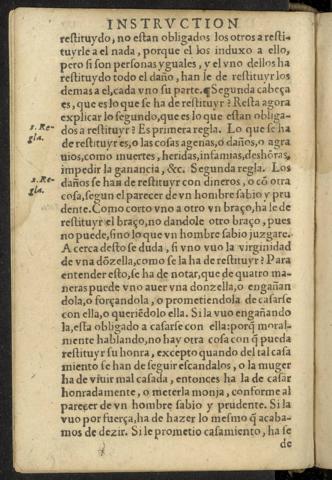 INSTRVCTION
restituydo, no estan obligados los otros a resti-
tuyrle a el nada, porque el los induxo a ello,
pero si son personas yguales, y el vno dellos ha
restituydo todo el daño, han le de restituyr los
demas a el, cada vno su parte. ¶ Segunda cabeça
es, que es lo que se ha de restituyr? Resta agora
explicar lo segundo, que es lo que estan obliga-
1. Re-
gla.
dos a restituyr? Es primera regla. Lo que se ha
de restituyr es, o las cosas agenas, o daños, o agra
uios, como muertes, heridas, infamias, deshōras,
impedir la ganancia, &c. Segunda regla. Los
2. Re-
gla.
daños se han de restituyr con dineros, o cō otra
cosa, segun el parecer de vn hombre sabio y pru
dente. Como corto vno a otro vn braço, ha le de
restituyr el braço, no dandole otro braço, pues
no puede, sino lo que vn hombre sabio juzgare.
A cerca desto se duda, si vno vuo la virginidad
de vna dōzella, como se la ha de restituyr? Para
entender esto, se ha de notar, que de quatro ma-
neras puede vno auer vna donzella, o engañan
dola, o forçandola, o prometiendola de casarse
con ella, o queriēdolo ella. Si la vuo engañando
la, esta obligado a casarse con ella: porq̃ moral-
miente hablando, no hay otra cosa con q̃ pueda
restituyr su honra, excepto quando del tal casa
miento se han de seguir escandalos, o la muger
ha de viuir mal casada, entonces ha la de casar
honradamente, o meterla monja, conforme al
parecer de vn hombre sabio y prudente. Si la
vuo por fuerça, ha de hazer lo mesmo q̃ acaba-
mos de dezir. Si le prometio casamiento, ha se
de